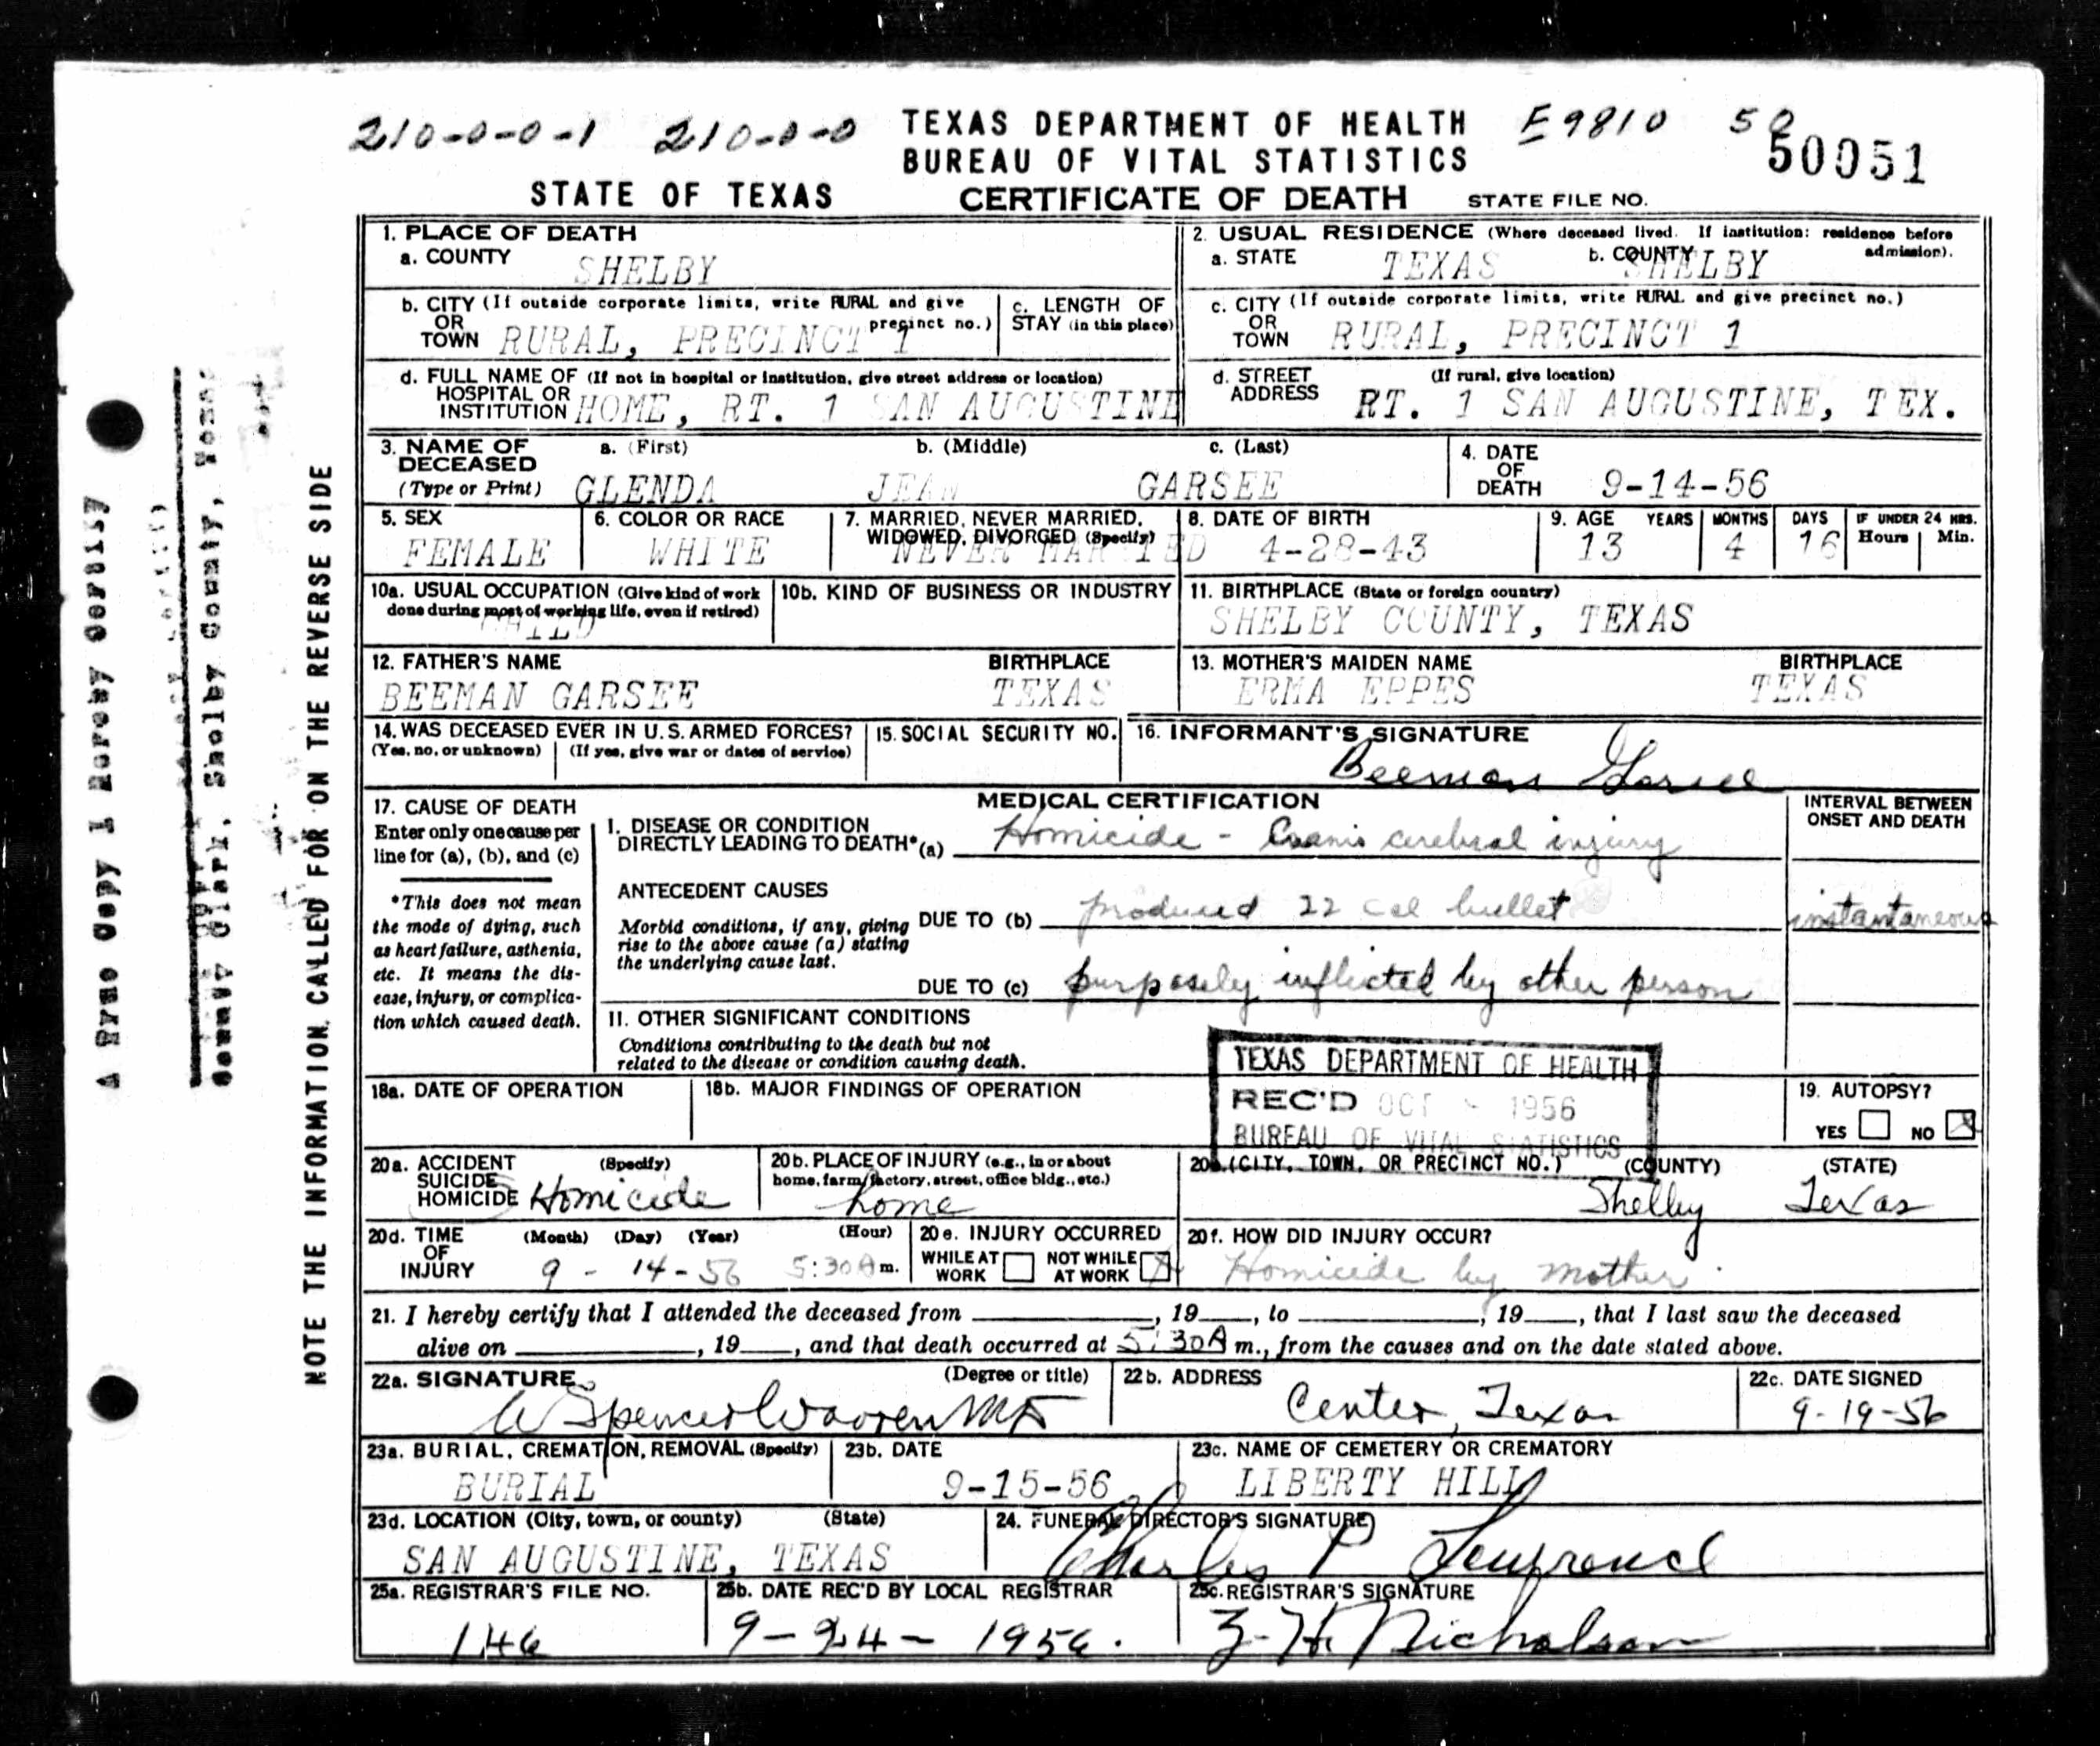 210-0-0-1 210-0-0 TEXAS DEPARTMENT OF HEALTH E9810 50
BUREAU OF VITAL STATISTICS 50051
STATE OF TEXAS CERTIFICATE OF DEATH STATE FILE NO.
1. PLACE OF DEATH
a. COUNTY SHELBY
2. USUAL RESIDENCE (Where deceased lived. If institution: residence before admission).
a. STATE TEXAS b. COUNTY SHELBY
b. CITY (If outside corporate limits, write RURAL and give precinct no.)
OR TOWN RURAL, PRECINCT 1
c. LENGTH OF STAY (in this place)
c. CITY (If outside corporate limits, write RURAL and give precinct no.)
OR TOWN RURAL, PRECINCT 1
d. FULL NAME OF (If not in hospital or institution, give street address or location)
HOSPITAL OR INSTITUTION HOME, RT. 1 SAN AUGUSTINE
d. STREET ADDRESS (If rural, give location)
RT. 1 SAN AUGUSTINE, TEX.
3. NAME OF DECEASED (Type or Print)
a. (First) b. (Middle) c. (Last)
GLENDA JEAN GARSEE
4. DATE OF DEATH 9-14-56
5. SEX
FEMALE
6. COLOR OR RACE
WHITE
7. MARRIED, NEVER MARRIED, WIDOWED, DIVORCED (Specify)
NEVER MARRIED
8. DATE OF BIRTH
4-28-43
9. AGE YEARS MONTHS DAYS IF UNDER 24 HRS. Hours Min.
13 4 16
10a. USUAL OCCUPATION (Give kind of work done during most of working life, even if retired)
CHILD
10b. KIND OF BUSINESS OR INDUSTRY
11. BIRTHPLACE (State or foreign country)
SHELBY COUNTY, TEXAS
12. FATHER'S NAME BIRTHPLACE
BEEMAN GARSEE TEXAS
13. MOTHER'S MAIDEN NAME BIRTHPLACE
ERMA EPPES TEXAS
14. WAS DECEASED EVER IN U.S. ARMED FORCES?
(Yes, no, or unknown) (If yes, give war or dates of service)
15. SOCIAL SECURITY NO.
16. INFORMANT'S SIGNATURE
Beeman Garsee
17. CAUSE OF DEATH
Enter only one cause per line for (a), (b), and (c)
*This does not mean the mode of dying, such as heart failure, asthenia, etc. It means the disease, injury, or complication which caused death.
MEDICAL CERTIFICATION
INTERVAL BETWEEN ONSET AND DEATH
I. DISEASE OR CONDITION DIRECTLY LEADING TO DEATH* (a) Homicide - cerebral injury
ANTECEDENT CAUSES
Morbid conditions, if any, giving rise to the above cause (a) stating the underlying cause last.
DUE TO (b) produced 22 cal bullet instantaneous
DUE TO (c) purposely inflicted by other person
II. OTHER SIGNIFICANT CONDITIONS
Conditions contributing to the death but not related to the disease or condition causing death.
TEXAS DEPARTMENT OF HEALTH
REC'D OCT 1956
BUREAU OF VITAL STATISTICS
18a. DATE OF OPERATION
18b. MAJOR FINDINGS OF OPERATION
19. AUTOPSY?
YES NO X
20a. ACCIDENT SUICIDE HOMICIDE (Specify)
Homicide
20b. PLACE OF INJURY (e.g., in or about home, farm, factory, street, office bldg., etc.)
home
20c. (CITY, TOWN, OR PRECINCT NO.) (COUNTY) (STATE)
Shelby Texas
20d. TIME OF INJURY (Month) (Day) (Year) (Hour)
9 - 14 - 56 5:30 A m.
20e. INJURY OCCURRED
WHILE AT WORK NOT WHILE AT WORK X
20f. HOW DID INJURY OCCUR?
Homicide by mother
21. I hereby certify that I attended the deceased from , 19 , to , 19 , that I last saw the deceased
alive on , 19 , and that death occurred at 5:30A m., from the causes and on the date stated above.
22a. SIGNATURE (Degree or title)
W Spencer Warren MD
22b. ADDRESS
Center, Texas
22c. DATE SIGNED
9-19-56
23a. BURIAL, CREMATION, REMOVAL (Specify)
BURIAL
23b. DATE
9-15-56
23c. NAME OF CEMETERY OR CREMATORY
LIBERTY HILL
23d. LOCATION (City, town, or county) (State)
SAN AUGUSTINE, TEXAS
24. FUNERAL DIRECTOR'S SIGNATURE
Charles P
25a. REGISTRAR'S FILE NO.
146
25b. DATE REC'D BY LOCAL REGISTRAR
9-24-1956.
25c. REGISTRAR'S SIGNATURE
Z. H. Nicholson
NOTE THE INFORMATION CALLED FOR ON THE REVERSE SIDE
A True Copy I Hereby Certify
County Clerk, Shelby County, Texas